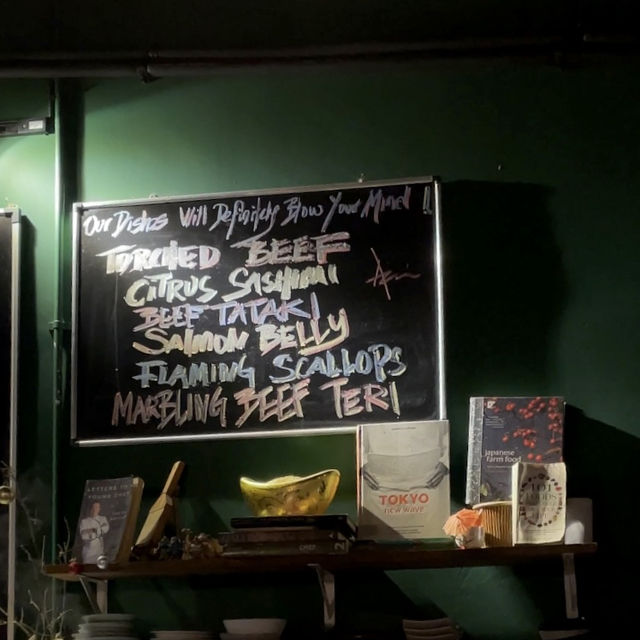 Our Dishes Will Definitely Blow Your Mind !!
TORCHED BEEF
CITRUS SASHIMI
BEEF TATAKI
SALMON BELLY
FLAMING SCALLOPS
MARBLING BEEF TERI
LETTERS TO
YOUNG CHEF
TOKYO
new wave
japanese
farm food